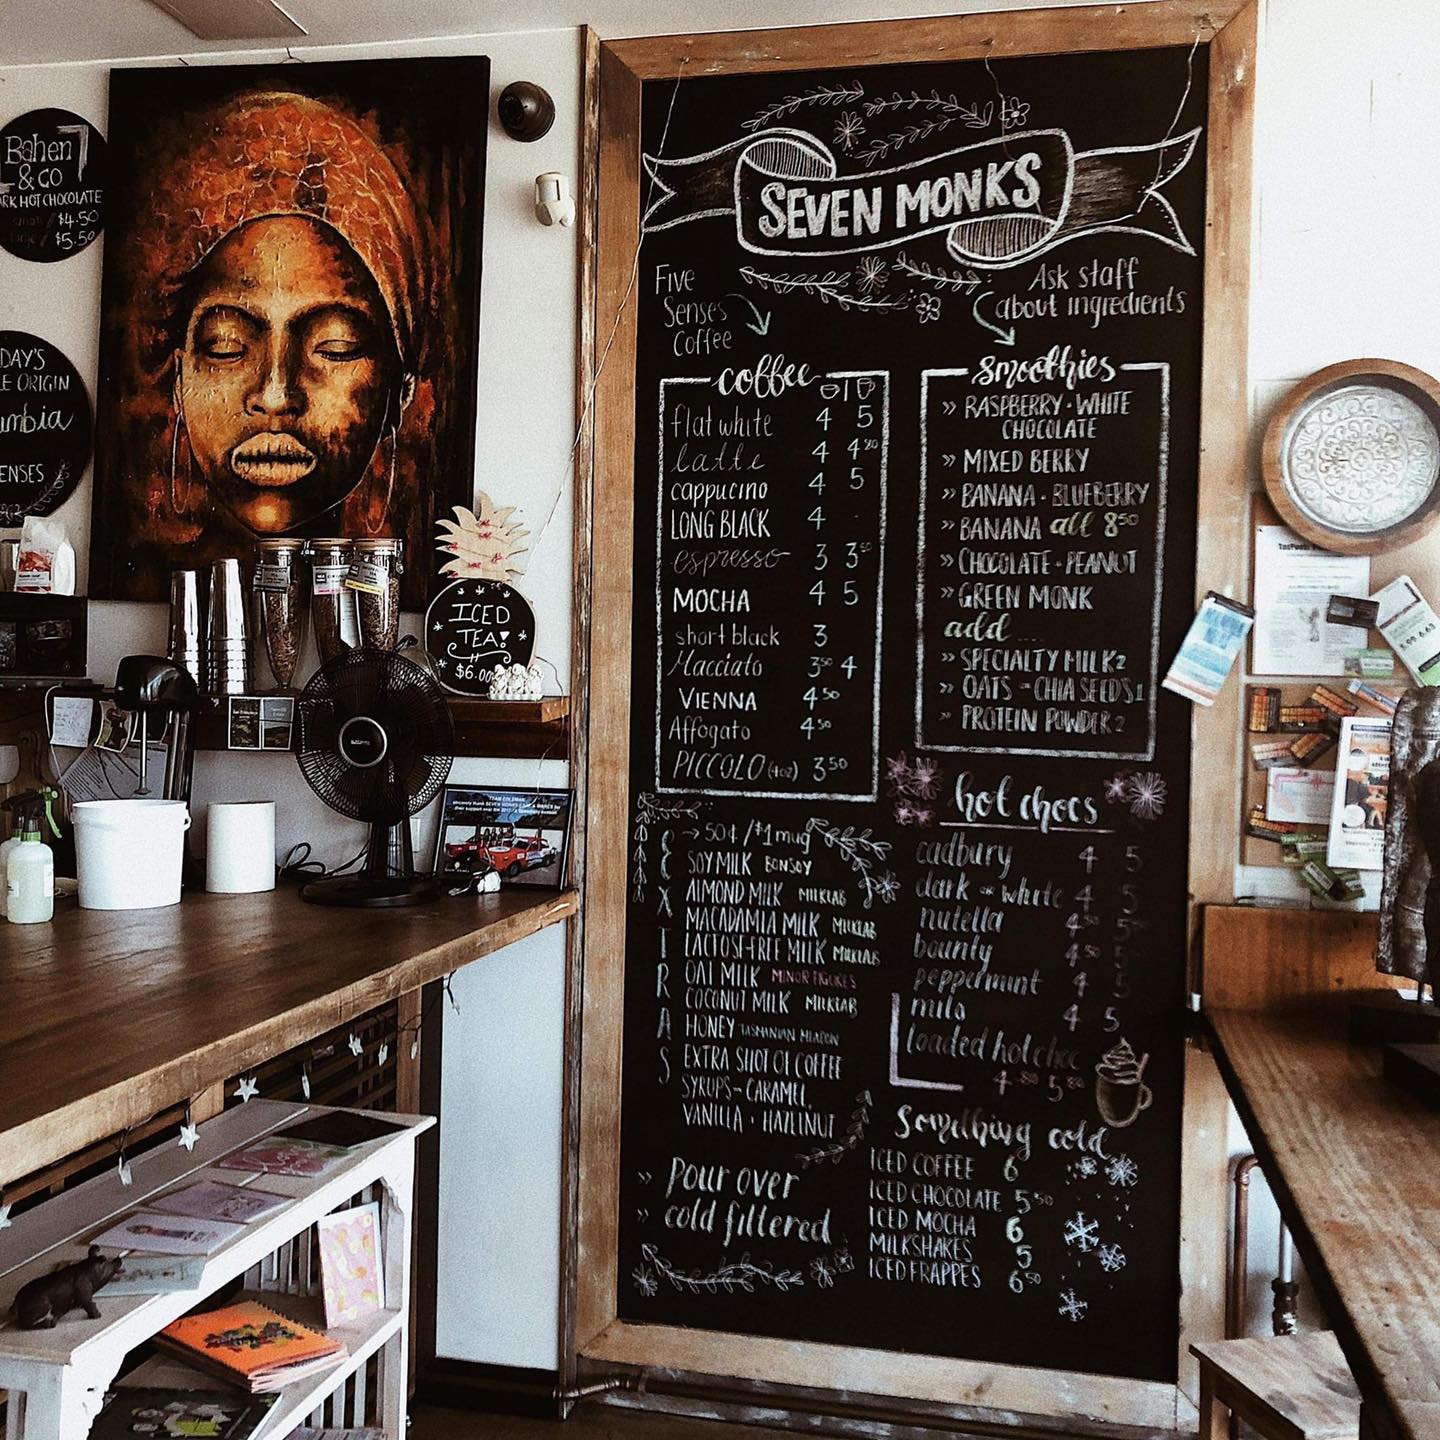 Bahen
& CO
HOT CHOCOLATE
small / $4.50
$5.50
DAY'S
ORIGIN
ENSES
ICED
TEA!
$6.00
SEVEN MONKS
Five
Senses
Coffee
Ask staff
about ingredients
coffee
flat white 4 5
latte 4 4.80
cappucino 4 5
LONG BLACK 4 -
espresso 3 3.50
MOCHA 4 5
short black 3
Macciato 3.50 4
VIENNA 4.50
Affogato 4.50
PICCOLO (4oz) 3.50
smoothies
» RASPBERRY - WHITE
CHOCOLATE
» MIXED BERRY
» BANANA - BLUEBERRY
» BANANA all 8.50
» CHOCOLATE - PEANUT
» GREEN MONK
add ....
» SPECIALTY MILK 2
» OATS - CHIA SEEDS 1
» PROTEIN POWDER 2
EXTRAS
→ 50¢ / $1 mug
SOY MILK BONSOY
ALMOND MILK MILKLAB
MACADAMIA MILK MILKLAB
LACTOSE-FREE MILK MILKLAB
OAT MILK MINOR FIGURES
COCONUT MILK MILKLAB
HONEY TASMANIAN MEADOW
EXTRA SHOT OF COFFEE
SYRUPS - CARAMEL,
VANILLA + HAZELNUT
» Pour over
» cold filtered
hot chocs
cadbury 4 5
dark or white 4 5
nutella 4.50 5
bounty 4.50 5
peppermint 4 5
milo 4 5
loaded hot choc
4.80 5.80
Something cold
ICED COFFEE 6
ICED CHOCOLATE 5.50
ICED MOCHA 6
MILKSHAKES 5
ICED FRAPPES 6.50
TEAM COLEMAN